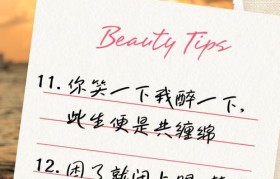 Beauty Tips
11. 你笑一下我醉一下，
此生便是共缠绵
12. 困了就闭上眼